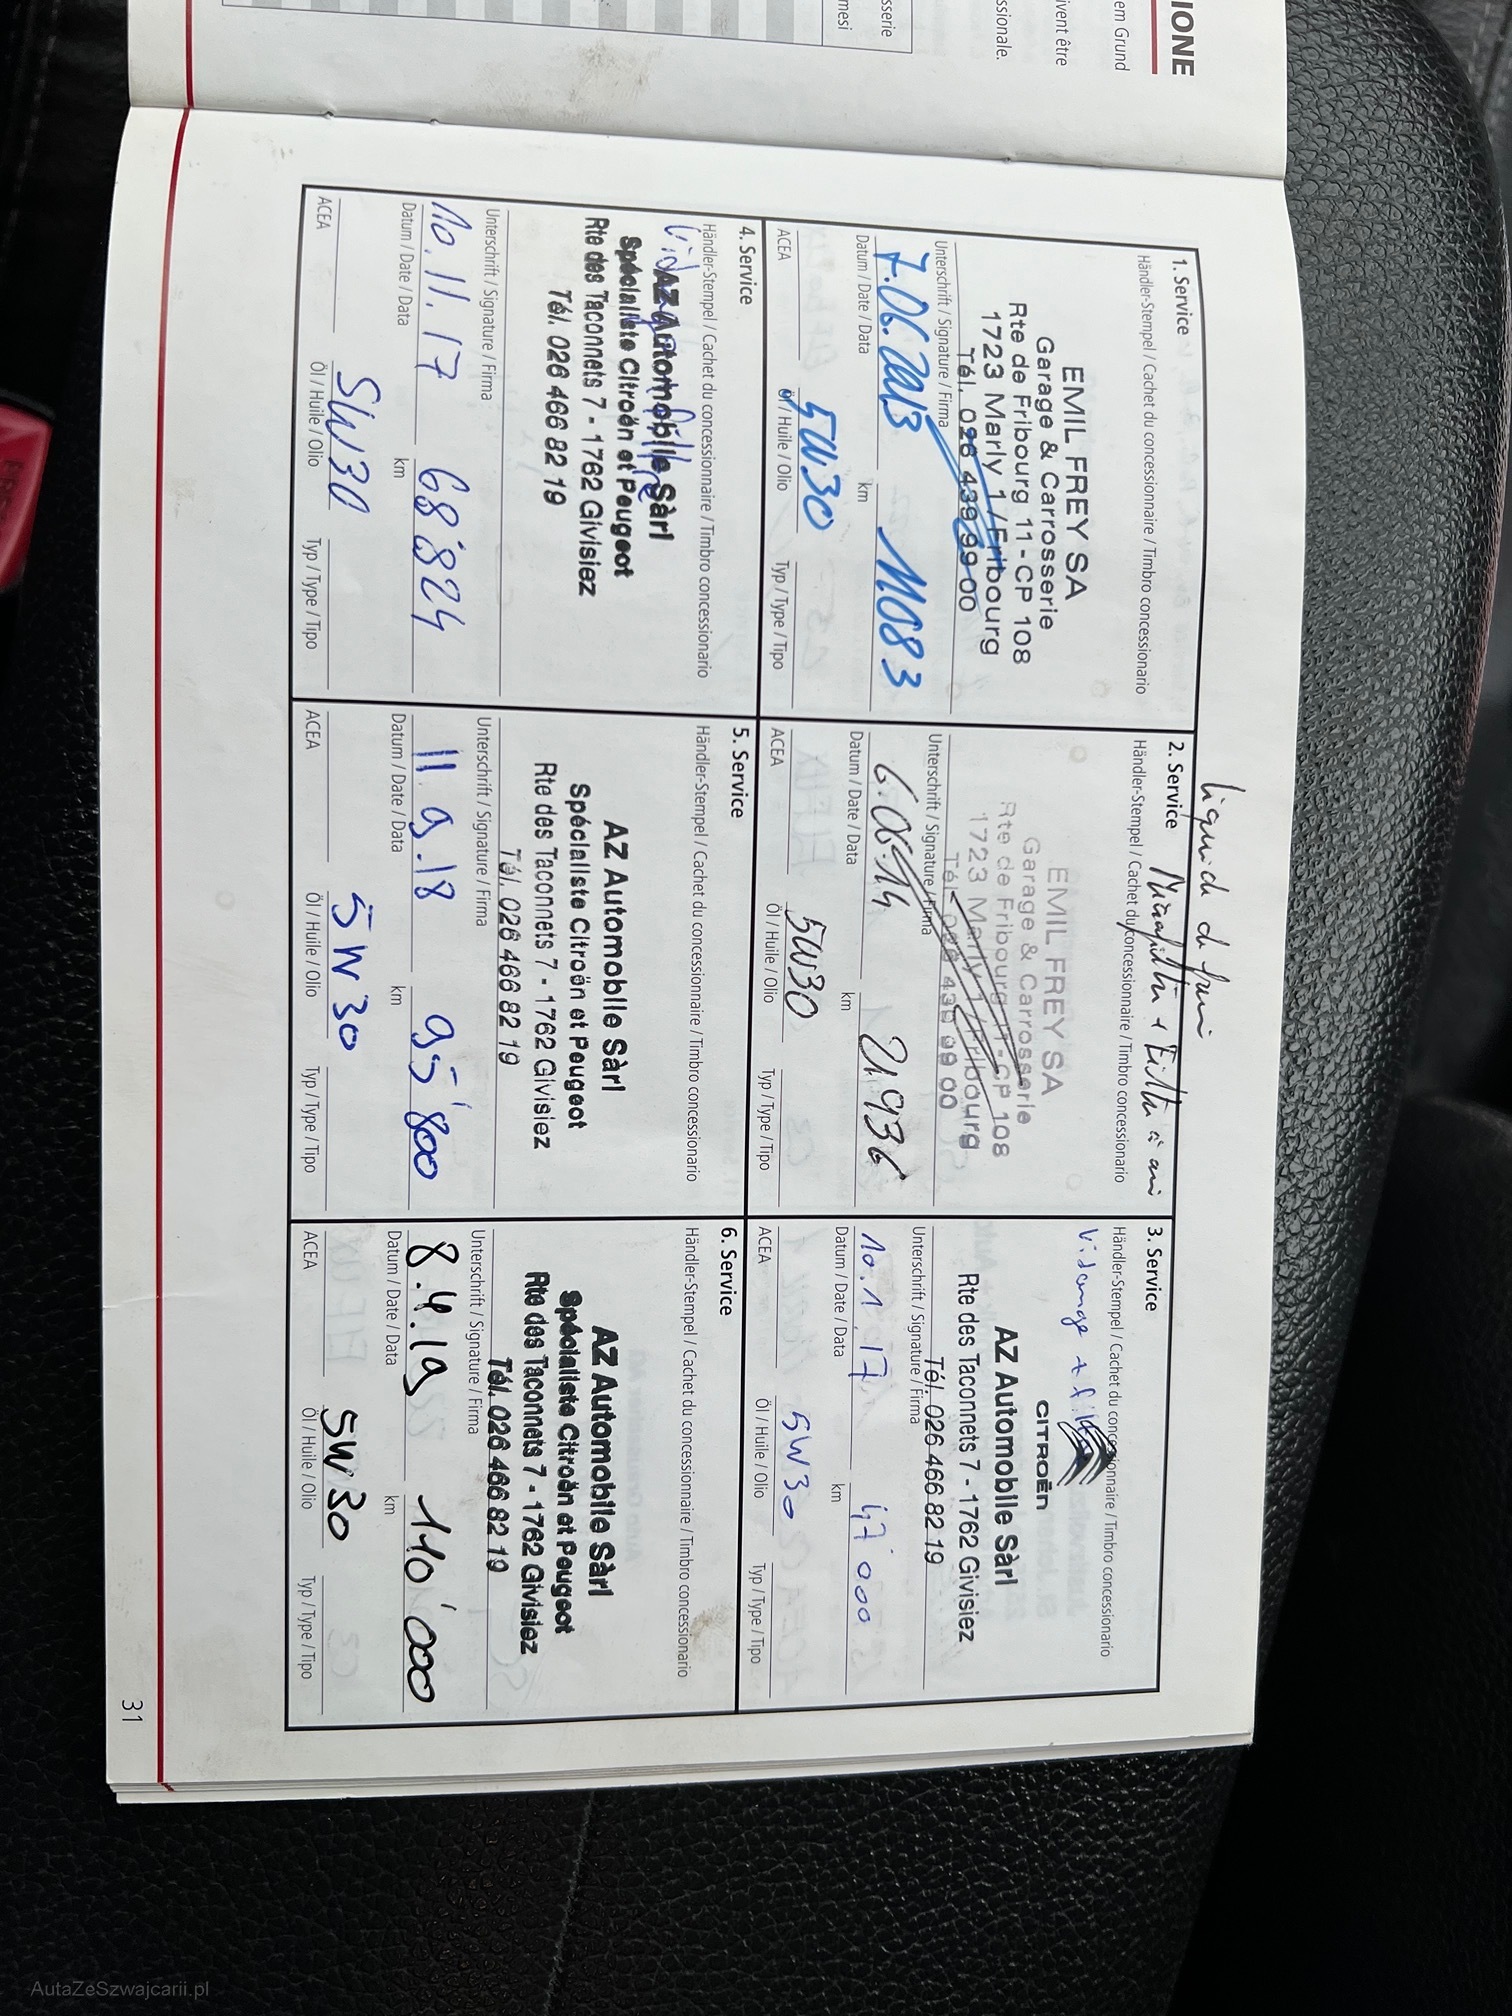 IONE
em Grund
ivent être
ssionale.
sserie
mesi
liquide de frein
1. Service
Händler-Stempel / Cachet du concessionnaire / Timbro concessionario
EMIL FREY SA
Garage & Carrosserie
Rte de Fribourg 11-CP 108
1723 Marly 1 / Fribourg
Tél. 026 439 99 00
Unterschrift / Signature / Firma
7.06.2013
11083
Datum / Date / Data
km
5W30
ACEA
Öl / Huile / Olio
Typ / Type / Tipo
2. Service
Händler-Stempel / Cachet du concessionnaire / Timbro concessionario
EMIL FREY SA
Garage & Carrosserie
Rte de Fribourg 11-CP 108
1723 Marly 1 / Fribourg
Tél. 026 439 99 00
Unterschrift / Signature / Firma
6.06.14
21936
Datum / Date / Data
km
5W30
ACEA
Öl / Huile / Olio
Typ / Type / Tipo
3. Service
Händler-Stempel / Cachet du concessionnaire / Timbro concessionario
Vidange + filtre
CITROËN
AZ Automobile Sàrl
Rte des Taconnets 7 - 1762 Givisiez
Tél. 026 466 82 19
Unterschrift / Signature / Firma
10.1.17
47'000
Datum / Date / Data
km
5W30
ACEA
Öl / Huile / Olio
Typ / Type / Tipo
4. Service
Händler-Stempel / Cachet du concessionnaire / Timbro concessionario
AZ Automobile Sàrl
Spécialiste Citroën et Peugeot
Rte des Taconnets 7 - 1762 Givisiez
Tél. 026 466 82 19
Unterschrift / Signature / Firma
10.11.17
68'824
Datum / Date / Data
km
5W30
ACEA
Öl / Huile / Olio
Typ / Type / Tipo
5. Service
Händler-Stempel / Cachet du concessionnaire / Timbro concessionario
AZ Automobile Sàrl
Spécialiste Citroën et Peugeot
Rte des Taconnets 7 - 1762 Givisiez
Tél. 026 466 82 19
Unterschrift / Signature / Firma
11.9.18
95'800
Datum / Date / Data
km
5W30
ACEA
Öl / Huile / Olio
Typ / Type / Tipo
6. Service
Händler-Stempel / Cachet du concessionnaire / Timbro concessionario
AZ Automobile Sàrl
Spécialiste Citroën et Peugeot
Rte des Taconnets 7 - 1762 Givisiez
Tél. 026 466 82 19
Unterschrift / Signature / Firma
8.4.19
110'000
Datum / Date / Data
km
5W30
ACEA
Öl / Huile / Olio
Typ / Type / Tipo
31
AutaZeSzwajcarii.pl